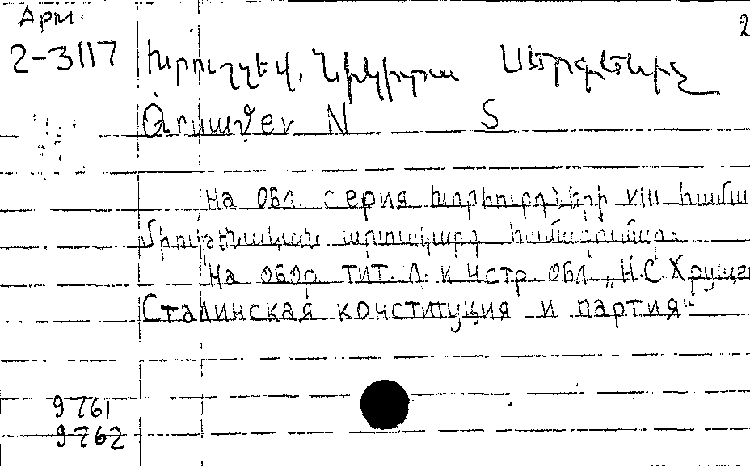 Арм 2
2-3117 Խրուշչեվ, Նիկիտա Սերգեևիչ
N S
На Обл. серия Խորհուրդների VIII համա
միութենական արտակարգ համագումար.
На обор. тит. л. и истр. Обл „Н.С Хрущев
Сталинская конституция и партия"
9761
9762